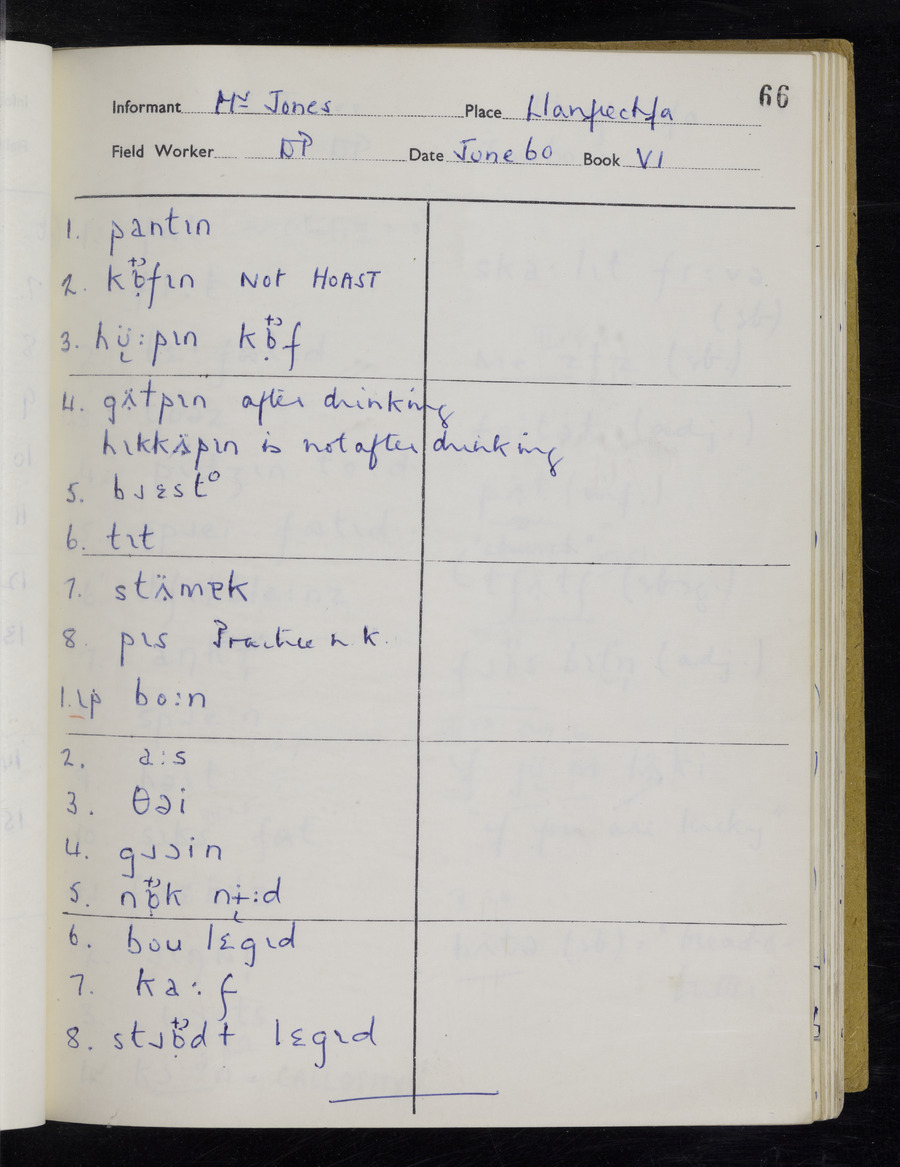 66
Informant Mr Jones Place Llanfrechfa
Field Worker DP Date June 60 Book VI
1. pantɪn
2. kɒ̣fɪn NOT HOAST
3. hü:pɪn kɒ̣f
4. gʌ̈tpɪn after drinking
hɪkkʌ̈pɪn is not after drinking
5. bɹɛst°
6. tɪt
7. stʌ̈mək
8. pɪs Practice n.k.
1. ɪp bo:n
2. a:s
3. θəi
4. gɹɔin
5. nɒ̣k nɨ:d
6. bou lɛgɪd
7. ka:f
8. stɹɒ̣dɫ lɛgɪd